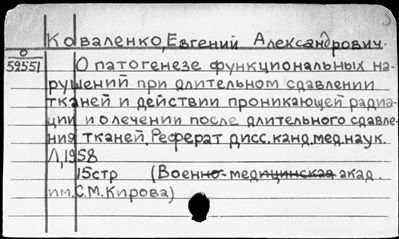 Коваленко, Евгений Александрович.
О
59551
О патогенезе функциональных на-
рушений при длительном сдавлении
тканей и действии проникающей радиа-
ции и о лечении после длительного сдавле-
ния тканей. Реферат дисс. канд. мед. наук.
Л, 1958
15стр (Военно-медицинская акад.
им. С.М. Кирова)